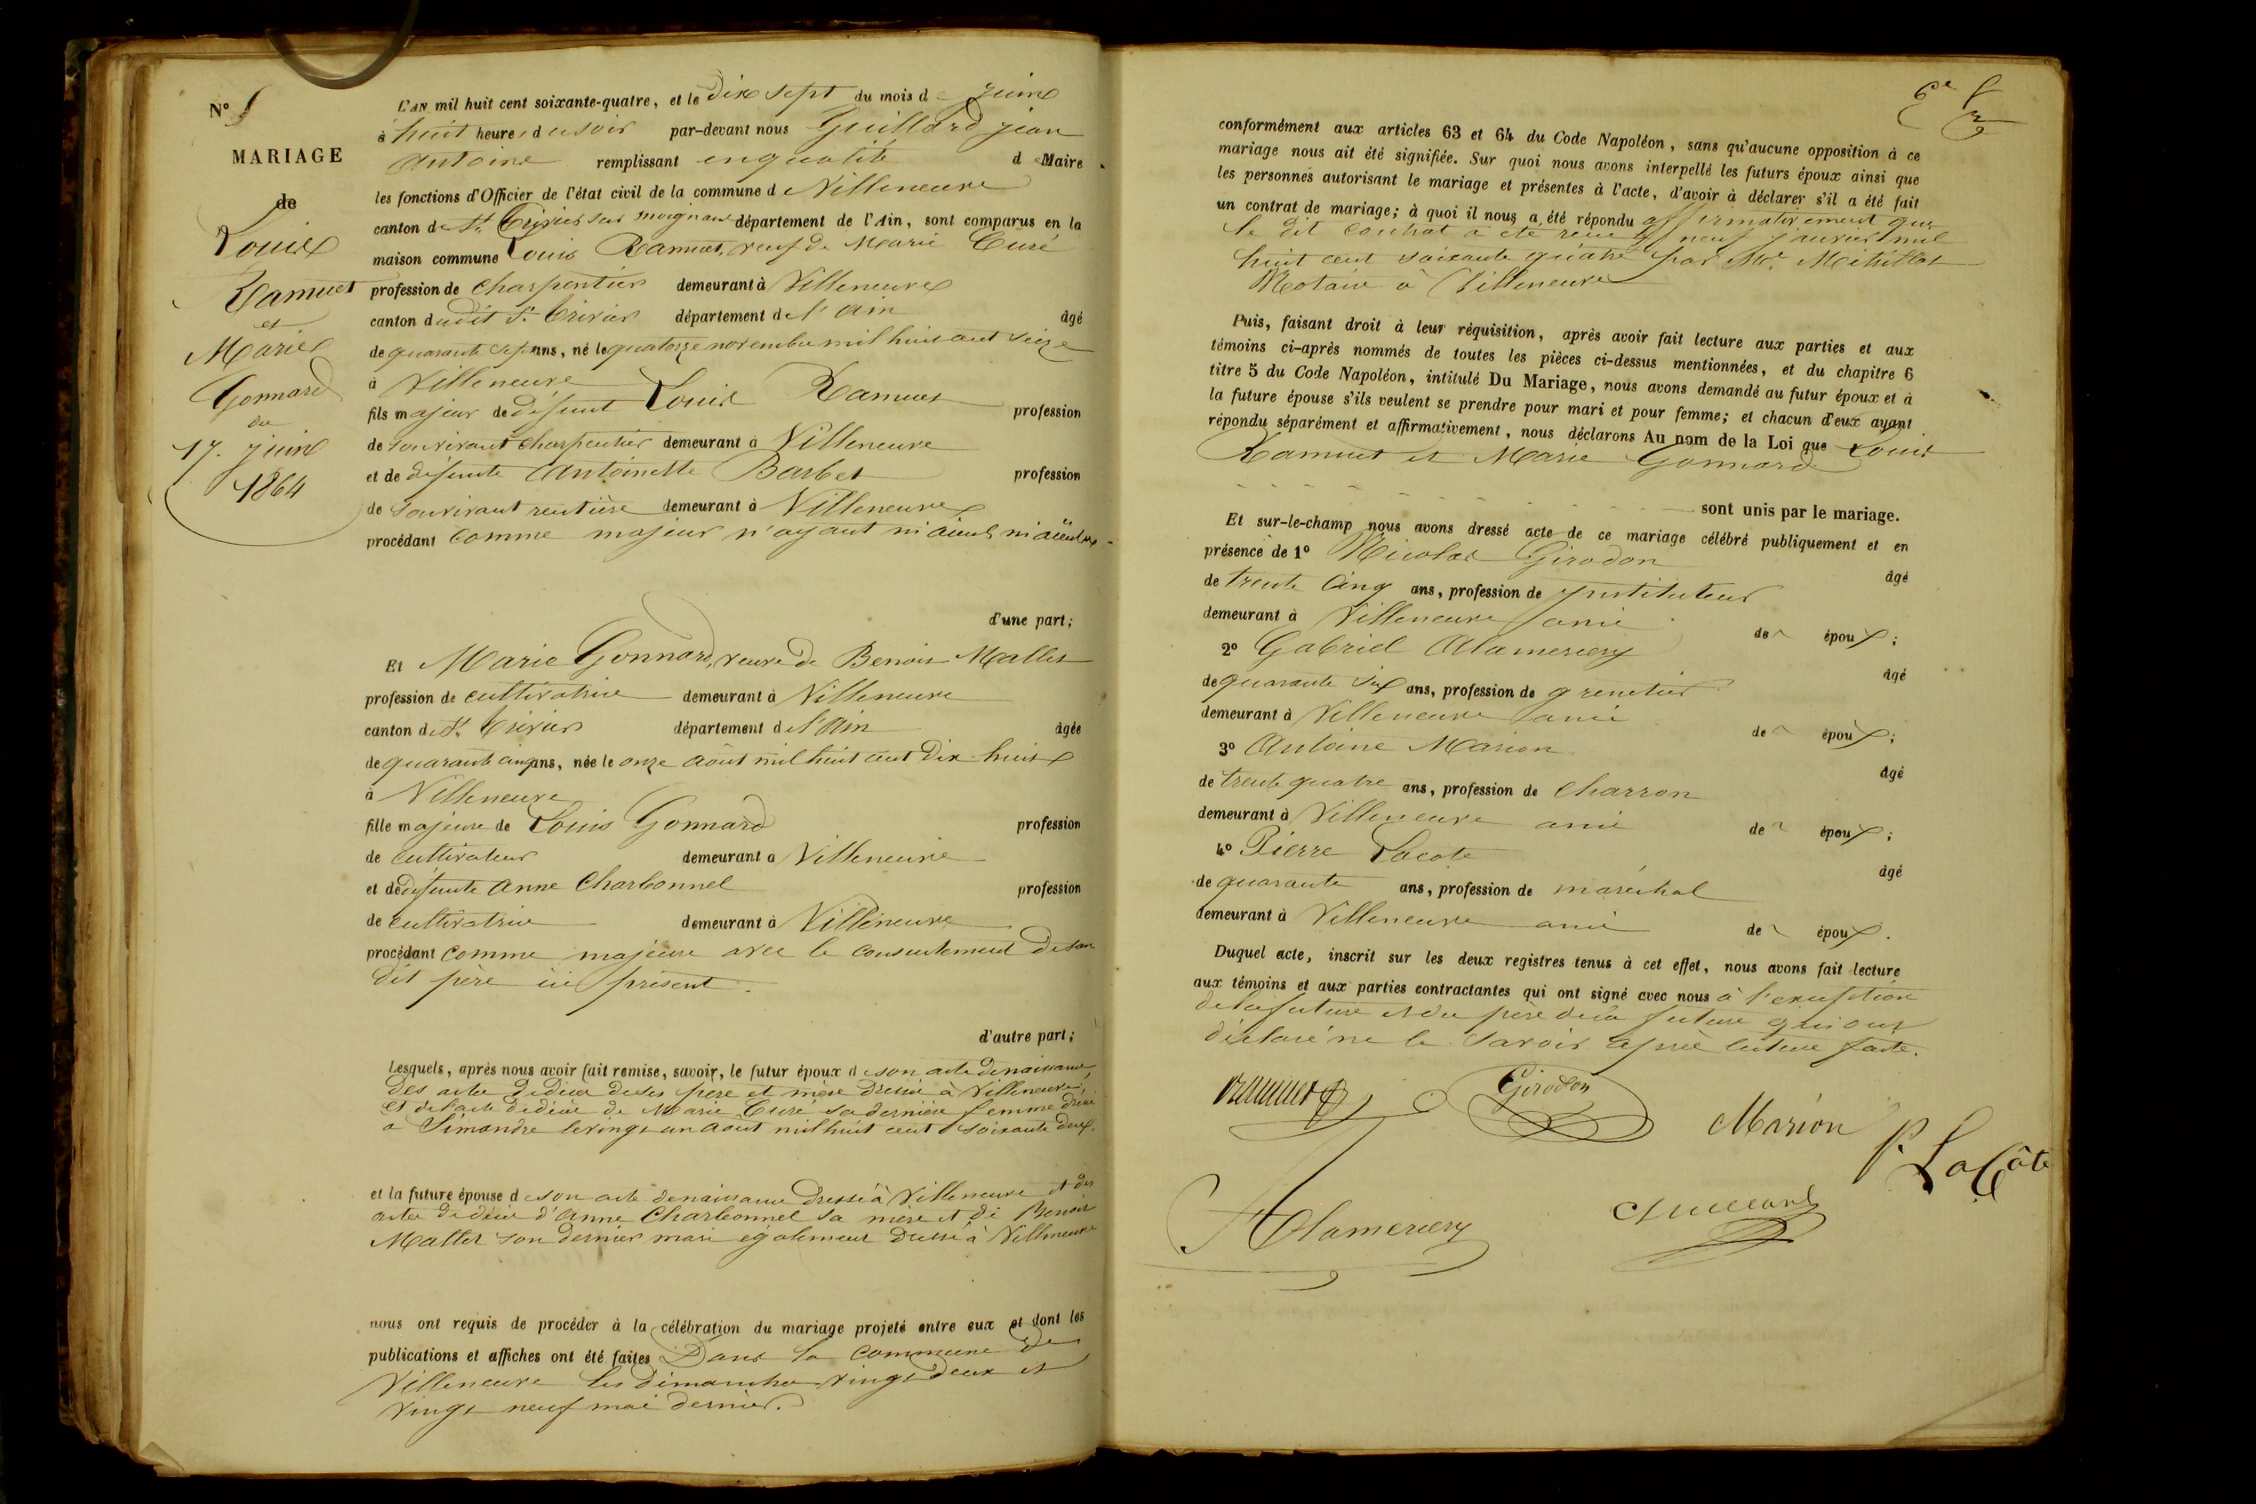 N° 5
MARIAGE
de
Louis
Ramuet
et
Marie
Gonnard
du
17. juin
1864
L'AN mil huit cent soixante-quatre, et le dix sept du mois de juin
à huit heures du soir par-devant nous Guillard jean
antoine remplissant en qualité de Maire
les fonctions d'Officier de l'état civil de la commune de Villeneuve
canton de St. Trivier sur moignans département de l'Ain, sont comparus en la
maison commune Louis Ramuet, veuf de Marie Curé
profession de charpentier demeurant à Villeneuve
canton dudit St. Trivier département de l'ain âgé
de quarante sept ans, né le quatorze novembre mil huit cent seize
à Villeneuve
fils majeur de défunt Louis Ramuet profession
de son vivant charpentier demeurant à Villeneuve
et de défunte Antoinette Barbet profession
de son vivant rentière demeurant à Villeneuve
procédant comme majeur n'ayant ni aieuls ni aïeules
d'une part;
Et Marie Gonnard, veuve de Benoit Mallet
profession de cultivatrice demeurant à Villeneuve
canton de St. Trivier département de l'Ain âgée
de quarante cinq ans, née le onze août mil huit cent dix huit
à Villeneuve
fille majeure de Louis Gonnard profession
de cultivateur demeurant à Villeneuve
et de défunte Anne Charbonnel profession
de cultivatrice demeurant à Villeneuve
procédant comme majeure avec le consentement de son
dit père ici présent.
d'autre part;
Lesquels, après nous avoir fait remise, savoir, le futur époux de son acte de naissance,
des actes de décès de ses père et mère dressés à Villeneuve,
et de l'acte de décès de Marie Curé sa dernière femme dressé
a Simandre le vingt un aout mil huit cent soixante deux.
et la future épouse de son acte de naissance dressé à Villeneuve et des
actes de décès d'Anne Charbonnel sa mère et de Benoit
Mallet son dernier mari également dressé à Villeneuve
nous ont requis de procéder à la célébration du mariage projeté entre eux et dont les
publications et affiches ont été faites Dans la commune de
Villeneuve les dimanches vingt deux et
vingt neuf mai dernier.
conformément aux articles 63 et 64 du Code Napoléon, sans qu'aucune opposition à ce
mariage nous ait été signifiée. Sur quoi nous avons interpellé les futurs époux ainsi que
les personnes autorisant le mariage et présentes à l'acte, d'avoir à déclarer s'il a été fait
un contrat de mariage; à quoi il nous a été répondu affirmativement que
le dit contrat a été reçu neuf janvier mil
huit cent soixante quatre par Me.
Notaire à Villeneuve
Puis, faisant droit à leur réquisition, après avoir fait lecture aux parties et aux
témoins ci-après nommés de toutes les pièces ci-dessus mentionnées, et du chapitre 6
titre 5 du Code Napoléon, intitulé Du Mariage, nous avons demandé au futur époux et à
la future épouse s'ils veulent se prendre pour mari et pour femme; et chacun d'eux ayant
répondu séparément et affirmativement, nous déclarons Au nom de la Loi que Louis
Ramuet et Marie Gonnard
sont unis par le mariage.
Et sur-le-champ nous avons dressé acte de ce mariage célébré publiquement et en
présence de 1° Nicolas Girodon âgé
de trente cinq ans, profession de instituteur
demeurant à Villeneuve ami des époux;
2° Gabriel Alamercery âgé
de quarante six ans, profession de grenetier
demeurant à Villeneuve ami des époux;
3° Antoine Marion âgé
de trente quatre ans, profession de charron
demeurant à Villeneuve ami des époux;
4° Pierre Lacote âgé
de quarante ans, profession de maréchal
demeurant à Villeneuve ami des époux.
Duquel acte, inscrit sur les deux registres tenus à cet effet, nous avons fait lecture
aux témoins et aux parties contractantes qui ont signé avec nous à l'exception
de la future et du père de la future qui ont
déclaré ne le savoir après lecture faite.
ramuet
Girodon
Marion
P. LaCôte
Alamercery
Guillard